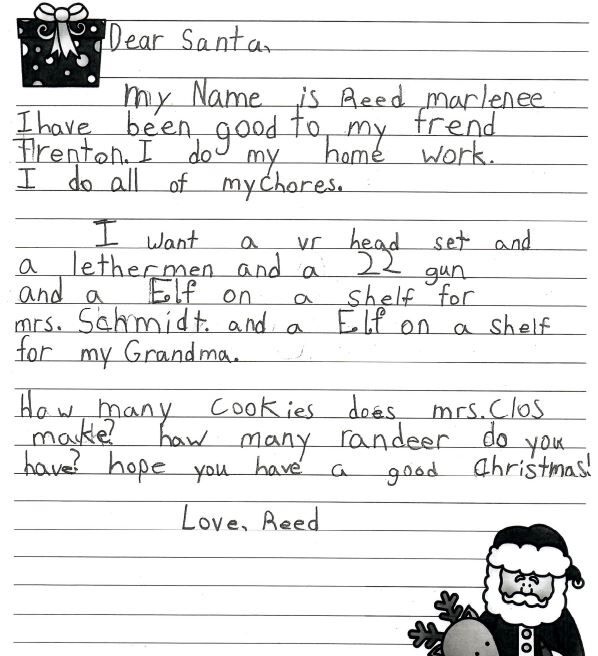 Dear Santa,
My Name is Reed marlenee
I have been good to my frend
Trenton. I do my home work.
I do all of my chores.
I want a vr head set and
a lethermen and a 22 gun
and a Elf on a shelf for
mrs. Schmidt. and a Elf on a shelf
for my Grandma.
How many cookies does mrs. Clos
make? haw many randeer do you
have? hope you have a good Christmas!
Love, Reed